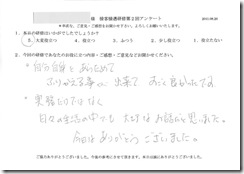 様 接客接遇研修第2回アンケート
2011.09.20
1. 本日の研修はいかがでしたでしょうか?
5、大変役立つ 4、役立つ 3、ふつう 2、少し役立つ 1、役立たない
2. 今回の研修であなたのお役に立つ内容・ご感想・ご意見などお聞かせください。
自分自身をあらためて
ふりかえる事が出来て すごく良かったです。
実務だけではなく
日々の生活の中でも大切なお話だと思いました。
今日はありがとうございました。